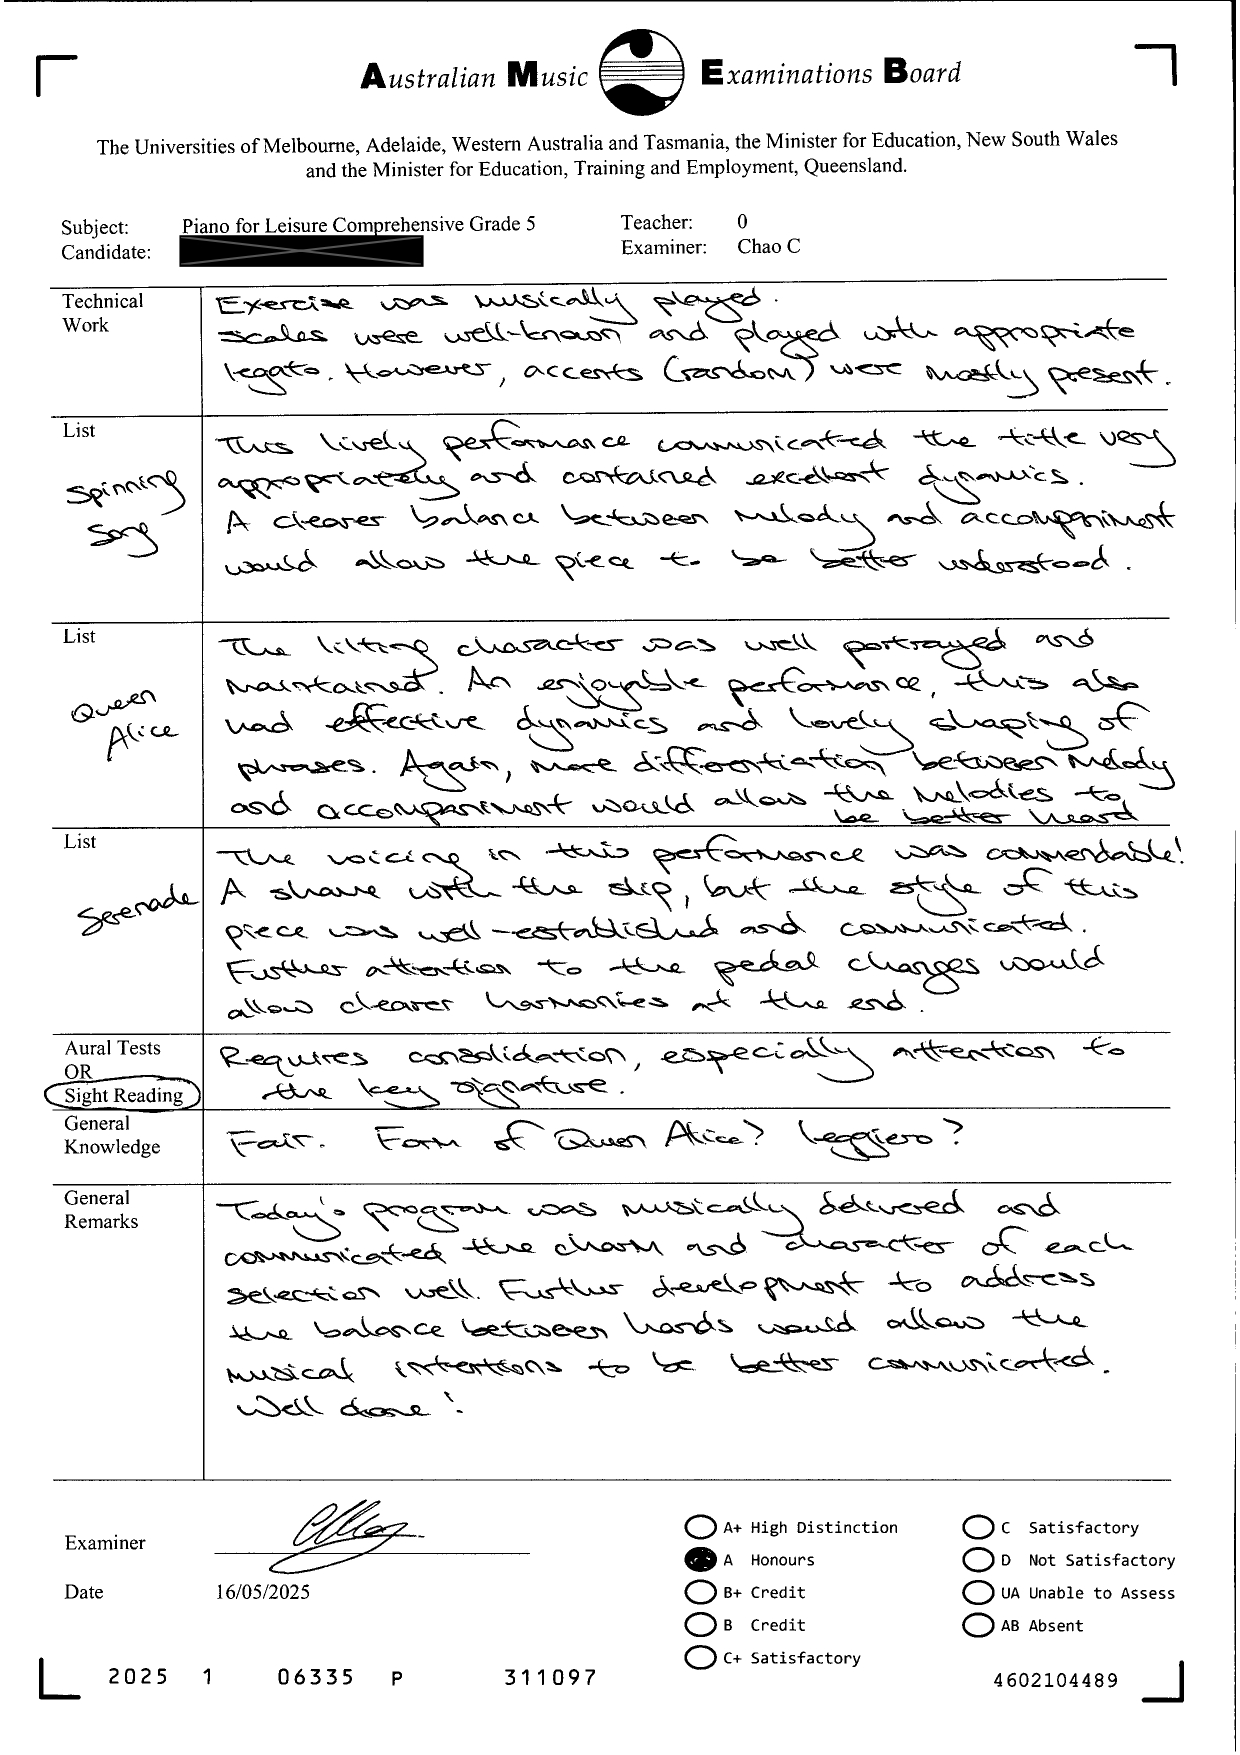 Australian Music Examinations Board
The Universities of Melbourne, Adelaide, Western Australia and Tasmania, the Minister for Education, New South Wales
and the Minister for Education, Training and Employment, Queensland.
Subject: Piano for Leisure Comprehensive Grade 5
Candidate:
Teacher: 0
Examiner: Chao C
Technical
Work
Exercise was musically played.
Scales were well-known and played with appropriate
legato. However, accents (random) were mostly present.
List
Spinning
Song
This lively performance communicated the title very
appropriately and contained excellent dynamics.
A clearer balance between melody and accompaniment
would allow the piece to be better understood.
List
Queen
Alice
The lilting character was well portrayed and
maintained. An enjoyable performance, this also
had effective dynamics and lovely shaping of
phrases. Again, more differentiation between melody
and accompaniment would allow the melodies to
be better heard
List
Serenade
The voicing in this performance was commendable!
A shame with the slip, but the style of this
piece was well-established and communicated.
Further attention to the pedal changes would
allow clearer harmonies at the end.
Aural Tests
OR
Sight Reading
Requires consolidation, especially attention to
the key signature.
General
Knowledge
Fair. Form of Queen Alice? Leggiero?
General
Remarks
Today's program was musically delivered and
communicated the charm and character of each
selection well. Further development to address
the balance between hands would allow the
musical intentions to be better communicated.
Well done!
Examiner
Date 16/05/2025
A+ High Distinction
A Honours
B+ Credit
B Credit
C+ Satisfactory
C Satisfactory
D Not Satisfactory
UA Unable to Assess
AB Absent
2025 1 06335 P 311097
4602104489